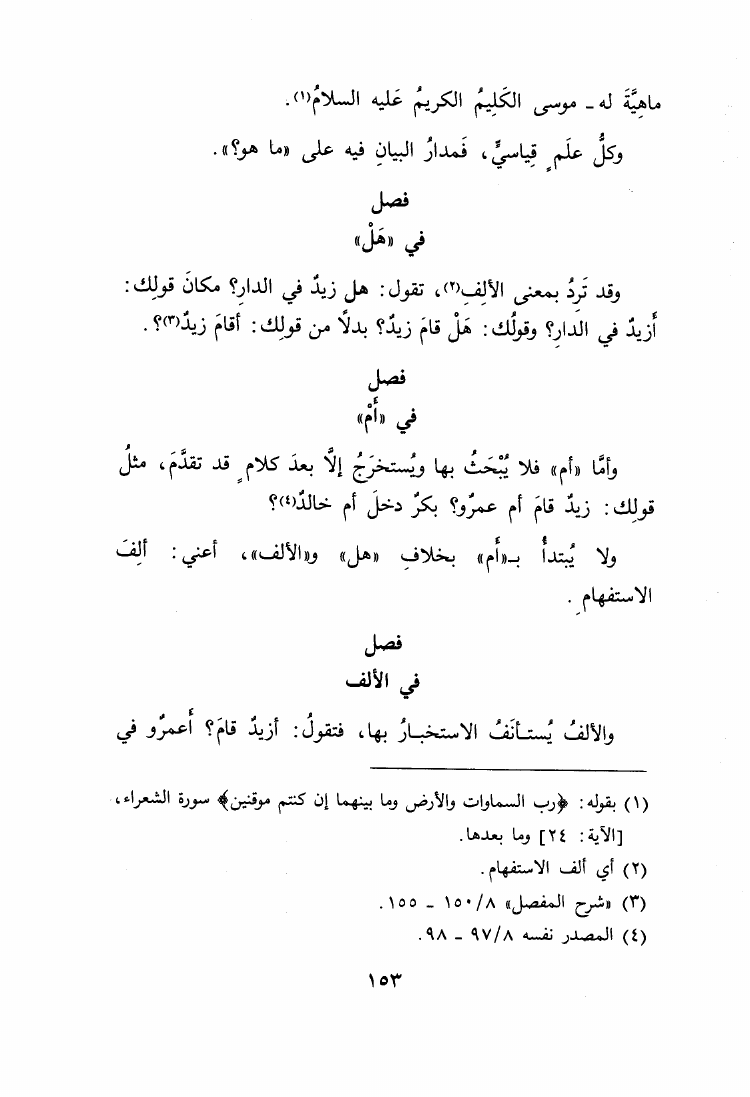 ماهِيَّةَ له ـ موسى الكَلِيمُ الكريمُ عَليه السلامُ(١).
وكلُّ علَمٍ قِياسيٍّ، فَمدارُ البيانِ فيه على «ما هو؟».
فصل
في «هَلْ»
وقد تَرِدُ بمعنى الألِفِ(٢)، تقول: هل زيدٌ في الدارِ؟ مكانَ قولِك:
أَزيدٌ في الدارِ؟ وقولُك: هَلْ قامَ زيدٌ؟ بدلًا من قولِك: أقامَ زيدٌ(٣)؟.
فصل
في «أَمْ»
وأمَّا «أم» فلا يُبْحَثُ بها ويُستخرَجُ إلَّا بعدَ كلامٍ قد تقدَّمَ، مثلُ
قولِك: زيدٌ قامَ أم عمرٌو؟ بكرٌ دخلَ أم خالدٌ(٤)؟
ولا يُبتدأُ بـ«أَم» بخلافِ «هل» و«الألف»، أعني: ألِفَ
الاستفهامِ.
فصل
في الألف
والألفُ يُستـأنَفُ الاستخبـارُ بها، فتقولُ: أزيدٌ قامَ؟ أَعمرٌو في
(١) بقوله: ﴿رب السماوات والأرض وما بينهما إن كنتم موقنين﴾ سورة الشعراء،
[الآية: ٢٤] وما بعدها.
(٢) أي ألف الاستفهام.
(٣) «شرح المفصل» ٨/١٥٠ ـ ١٥٥.
(٤) المصدر نفسه ٨/٩٧ ـ ٩٨.
١٥٣